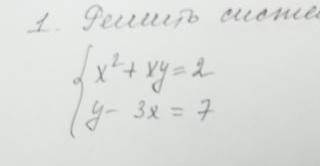 1. Решить систе
x² + xy = 2
y - 3x = 7